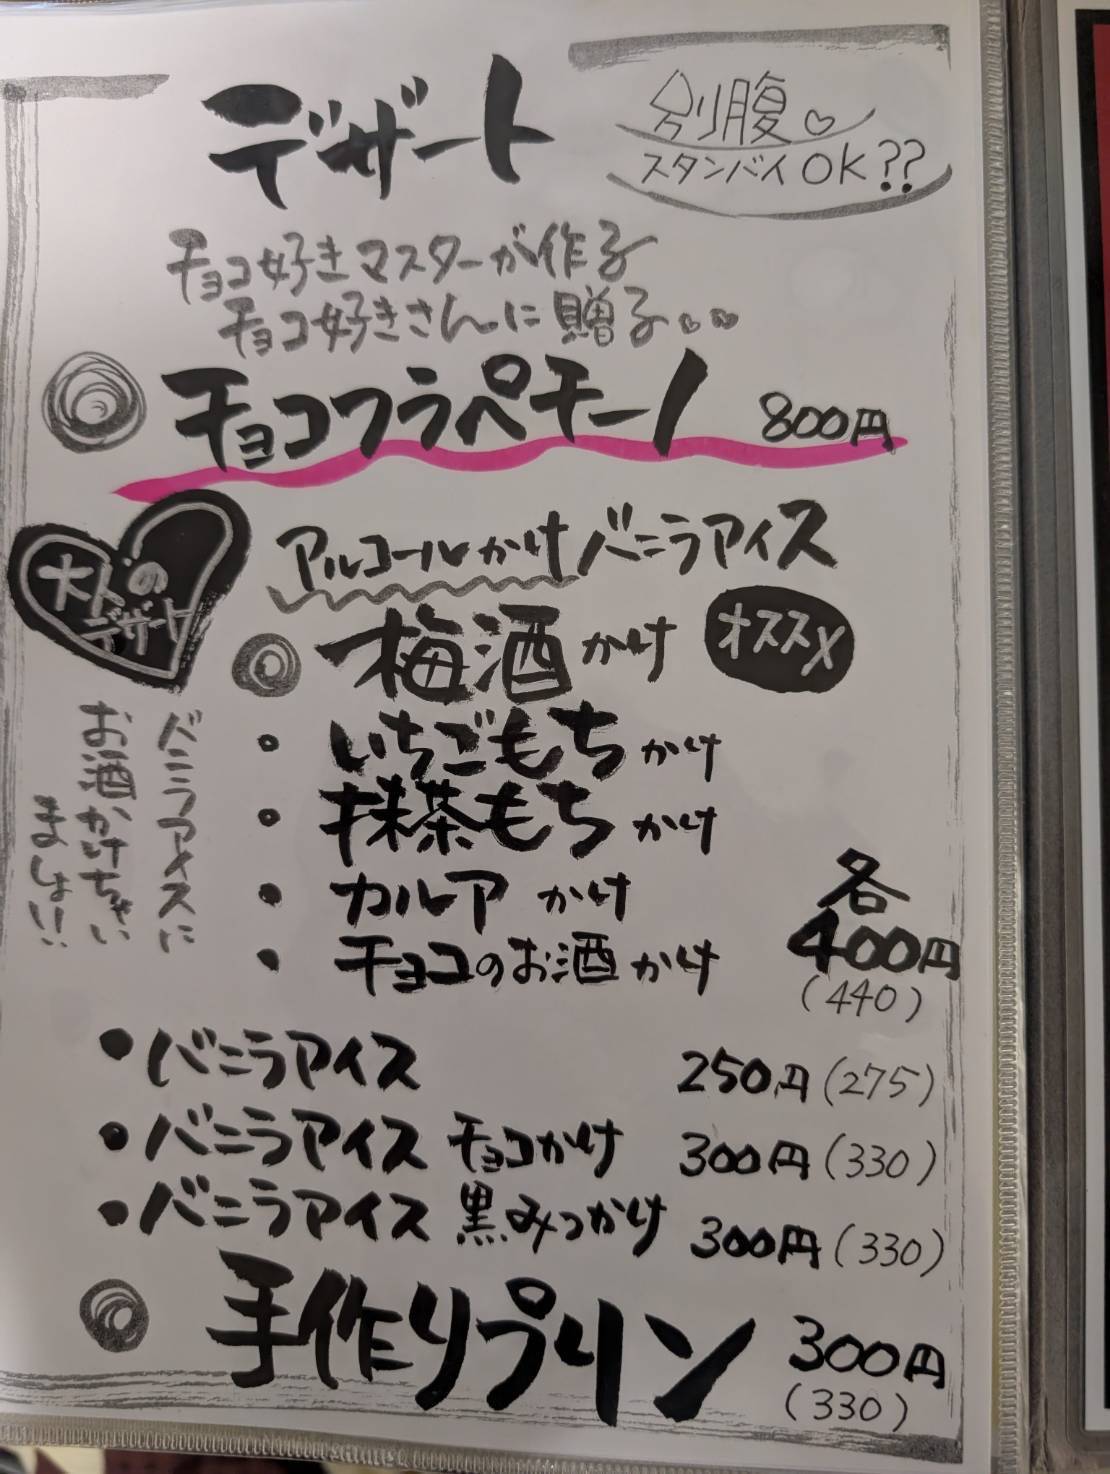 デザート
別腹♡
スタンバイOK??
チョコ好きマスターが作る
チョコ好きさんに贈る
チョコフラペチーノ 800円
大人の
デザート
バニラアイスに
お酒かけちゃい
ましょ!!
アルコールかけバニラアイス
梅酒かけ オススメ
・いちごもちかけ
・抹茶もちかけ
・カルアかけ
・チョコのお酒かけ
各
400円
(440)
・バニラアイス 250円(275)
・バニラアイス チョコかけ 300円(330)
・バニラアイス 黒みつかけ 300円(330)
手作りプリン 300円
(330)